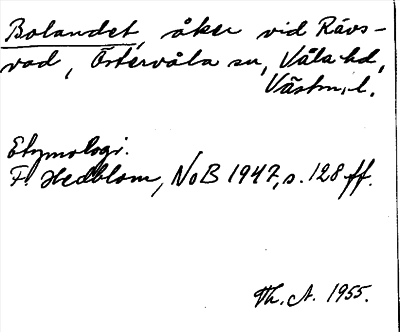 Bolandet, åker vid Rävs-
vad, Östervåla sn, Våla hd,
Västm. l.
Etymologi.
F. Hedblom, NoB 1947, s. 128 ff.
Th. A. 1955.